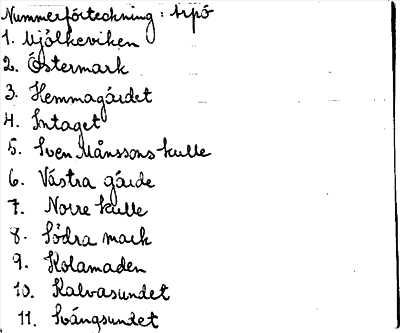 Nummerförteckning: Arpö
1. Mjölkeviken
2. Östermark
3. Hemmagärdet
4. Intaget
5. Sven Månssons kulle
6. Västra gärde
7. Norre kulle
8. Södra mark
9. Kolamaden
10. Kalvasundet
11. Svängsundet